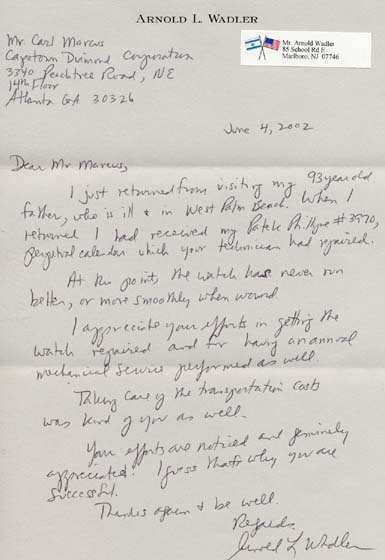 ARNOLD L. WADLER
Mr. Arnold Wadler
85 School Rd E
Marlboro, NJ 07746
Mr. Carl Marcus
Capetown Diamond Corporation
3340 Peachtree Road, NE
14th Floor
Atlanta GA 30326
June 4, 2002
Dear Mr Marcus,
I just returned from visiting my 93 year old
father, who is ill & in West Palm Beach. When I
returned I had received my Patek Phillipe #3970,
perpetual calendar which your technician had repaired.
At this point, the watch has never run
better, or more smoothly when wound.
I appreciate your efforts in getting the
watch repaired and for having an annual
mechanical service performed as well.
Taking care of the transportation costs
was kind of you as well.
Your efforts are noticed and genuinely
appreciated. I guess that's why you are
successful.
Thanks again & be well.
Regards,
Arnold L Wadler